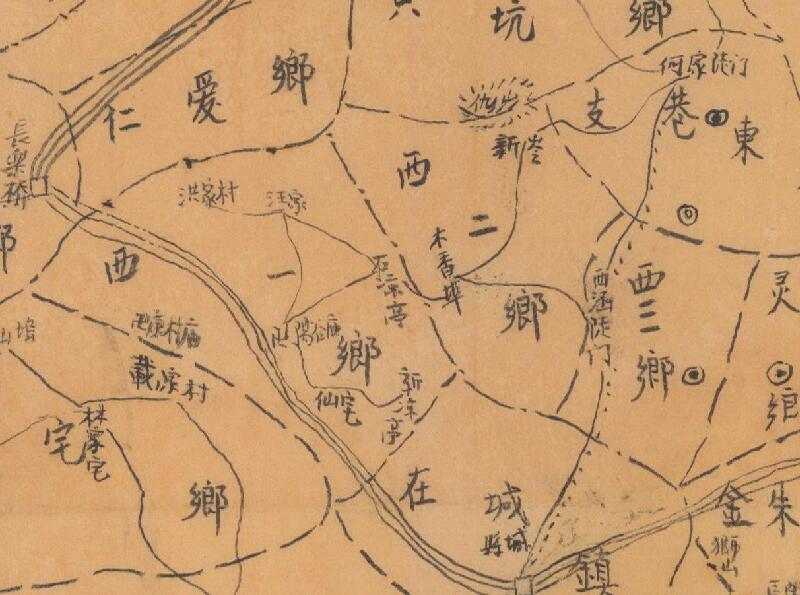 鄉
坑
鄉
何家陡门
仁
爱
鄉
支
巷
東
新岺
長樂橋
西
二
鄉
洪家村
汪家
木香埠
石凉亭
西
一
鄉
西涵陡门
西三鄉
灵
绾
載凉村
仙宅
新凉亭
林家宅
宅
鄉
在
城
縣城
鎮
金
朱
獅山